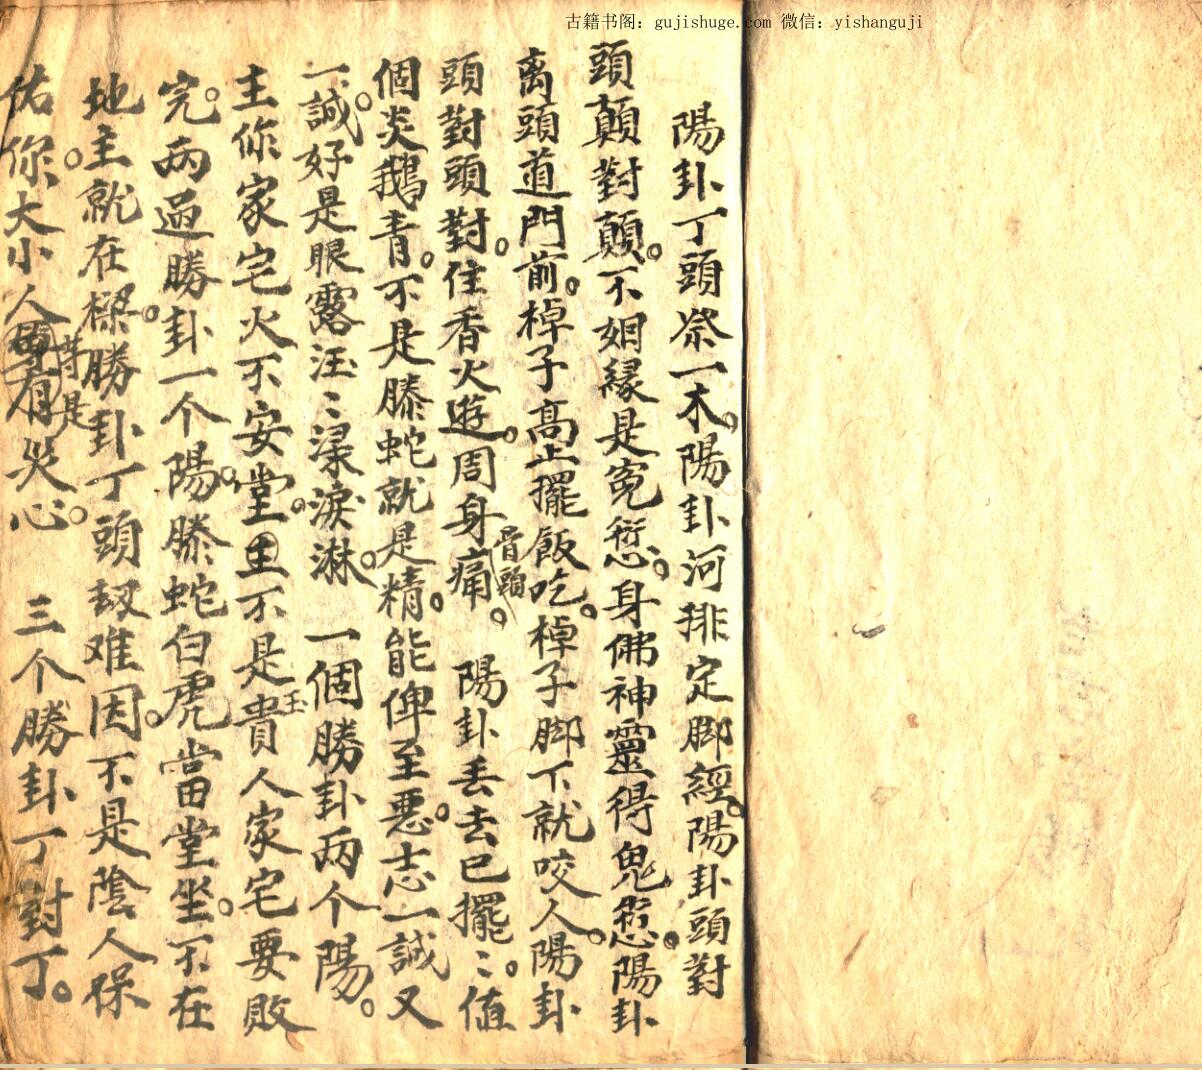 古籍书阁：gujishuge.com 微信：yishanguji
陽卦丁頭祭一木。陽卦河排定脚經。陽卦頭對
頭顛對顛。不姻緣是冤愆。身佛神靈得鬼愆。陽卦
离頭道門前。棹子高上擺飯吃。棹子脚下就咬人。陽卦
頭對頭對。住香火遊。周身骨頭痛。陽卦丢去已擺〻。值
個炎鵝青。不是滕蛇就是精。能俾至悪。志一誠又
一誠。好是眼露汪〻淚淋。一個勝卦兩个陽。
主你家宅火不安堂。土不是貴人家宅要敗
完。兩過勝卦一个陽。滕蛇白虎當堂坐。不在
地主就在樑。勝卦丁頭难因。不是陰人保
佑你。大小人有災心。三个勝卦丁對丁。